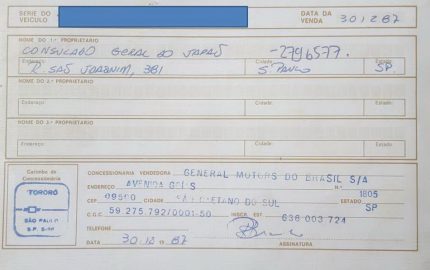 SERIE DO VEÍCULO DATA DA VENDA 30 12 87
NOME DO 1.º PROPRIETÁRIO
CONSULADO GERAL DO JAPÃO -2796577.
Endereço: Cidade: Estado:
R. SÃO JOAQUIM, 381 S. PAULO SP.
NOME DO 2.º PROPRIETÁRIO
Endereço: Cidade: Estado:
NOME DO 3.º PROPRIETÁRIO
Endereço: Cidade: Estado:
Carimbo da Concessionária
TORORÓ
SÃO PAULO
CONCESSIONÁRIA VENDEDORA GENERAL MOTORS DO BRASIL S/A
ENDEREÇO AVENIDA GOIÁS N.º 1805
CEP 09500 CIDADE SÃO CAETANO DO SUL ESTADO SP
C.G.C. 59.275.792/0001-50 INSCR. EST. 636 003 724
TELEFONE
DATA 30 12 1987 ASSINATURA